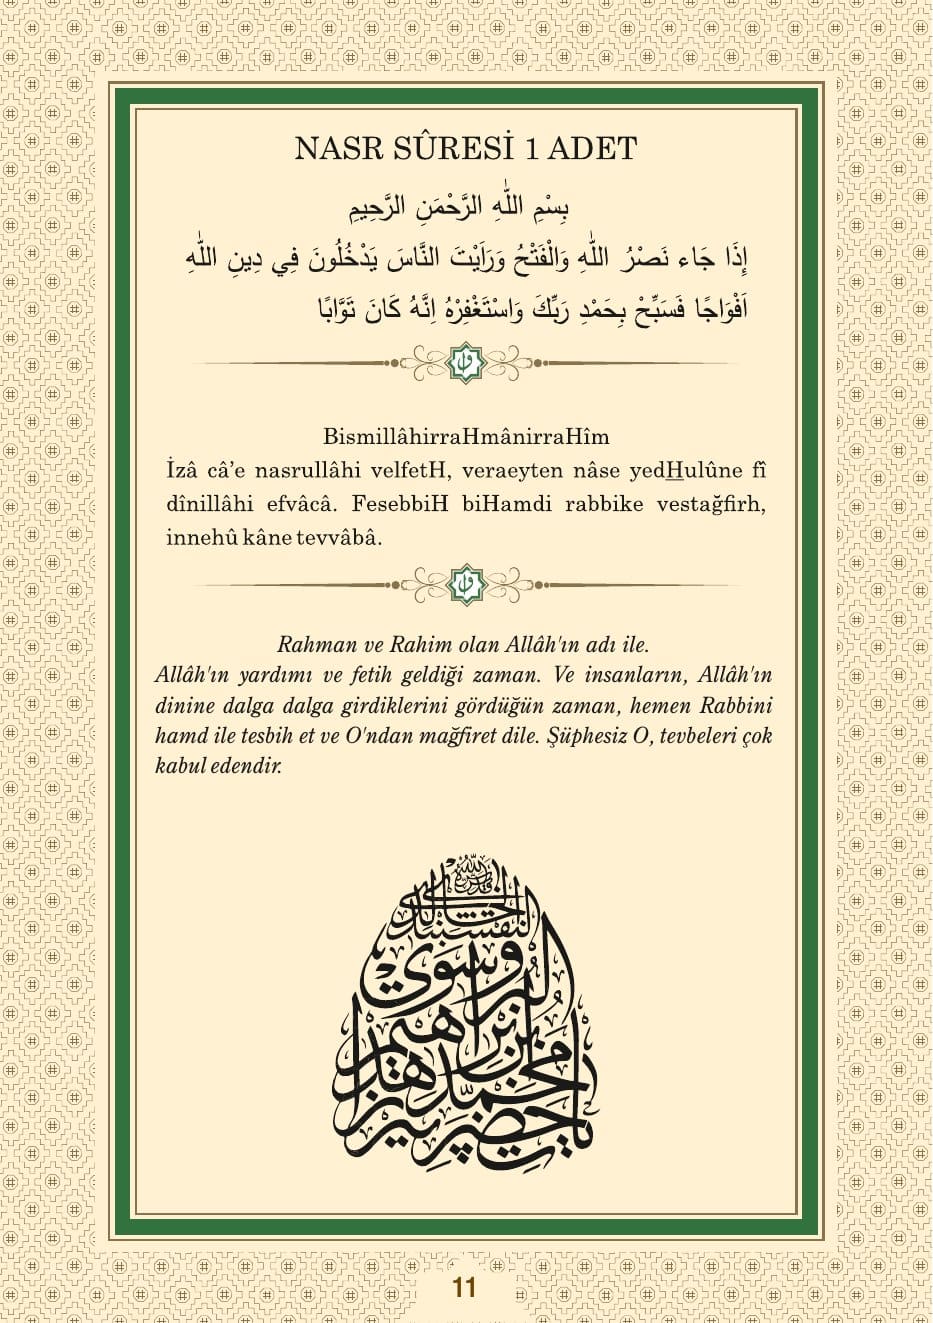 NASR SÛRESİ 1 ADET
بِسْمِ اللّٰهِ الرَّحْمَنِ الرَّحِيمِ
إِذَا جَاء نَصْرُ اللّٰهِ وَالْفَتْحُ وَرَاَيْتَ النَّاسَ يَدْخُلُونَ فِي دِينِ اللّٰهِ
اَفْوَاجًا فَسَبِّحْ بِحَمْدِ رَبِّكَ وَاسْتَغْفِرْهُ اِنَّهُ كَانَ تَوَّابًا
BismillâhirraHmânirraHîm
İzâ câ’e nasrullâhi velfetH, veraeyten nâse yedHulûne fî
dînillâhi efvâcâ. FesebbiH biHamdi rabbike vestağfirh,
innehû kâne tevvâbâ.
Rahman ve Rahim olan Allâh'ın adı ile.
Allâh'ın yardımı ve fetih geldiği zaman. Ve insanların, Allâh'ın
dinine dalga dalga girdiklerini gördüğün zaman, hemen Rabbini
hamd ile tesbih et ve O'ndan mağfiret dile. Şüphesiz O, tevbeleri çok
kabul edendir.
11